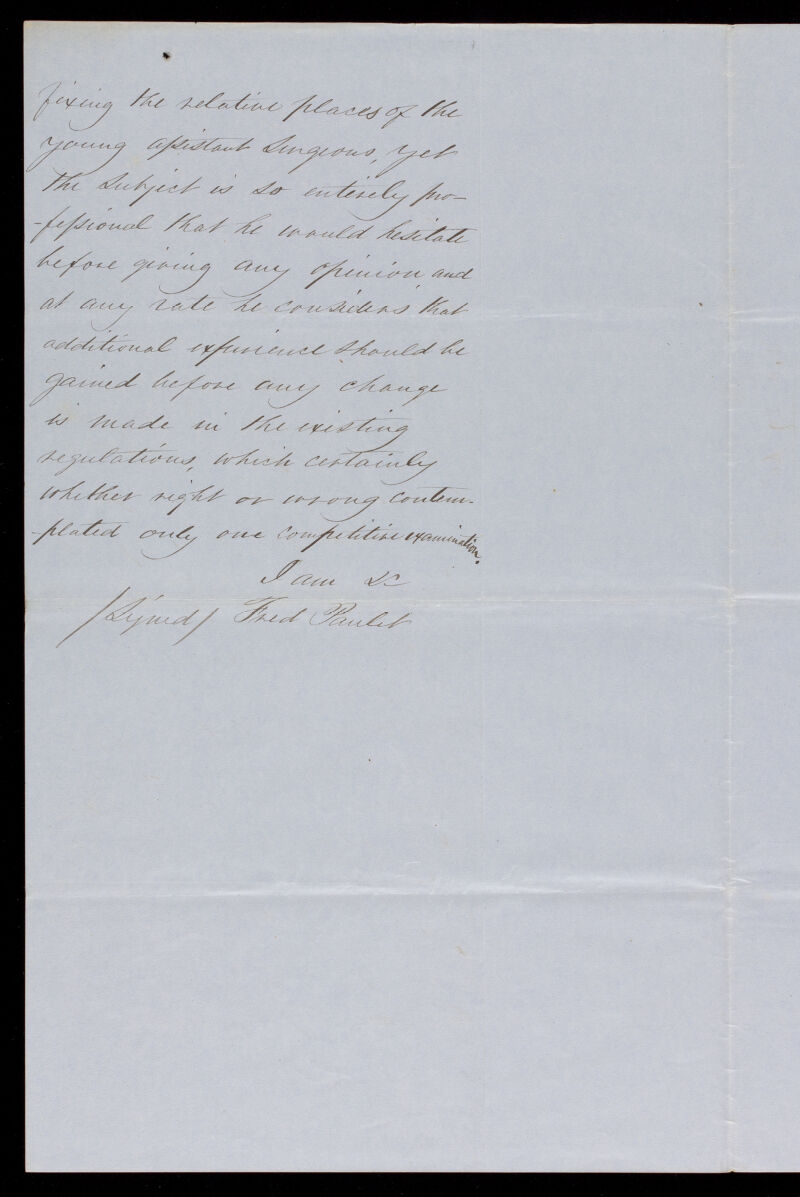 fixing the relative places of the
young assistant Surgeons, yet
the subject is so entirely pro-
-fessional that he would hesitate
before giving any opinion, and
at any rate he considers that
additional experience should be
gained before any change
is made in the existing
regulations, which certainly
whether right or wrong contem-
-plated only one competitive examination.
I am &c
/Signed/ Fred Paulet